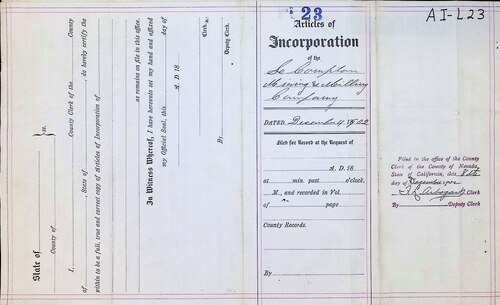 State of
County of
ss.
I, County Clerk of the County
of, State of, do hereby certify the
within to be a full, true and correct copy of Articles of Incorporation of
as remains on file in this office.
In Witness Whereof, I have hereunto set my hand and affixed
my Official Seal, this day of
A. D. 18
Clerk.
By
Deputy Clerk.
23
Articles of
Incorporation
of the
Le Compton
Mining & Milling
Company
DATED December 4 1902
Filed for Record at the Request of
A. D. 18
at min. past o'clock,
M., and recorded in Vol.
of page
County Records.
By
AI-L23
Filed in the office of the County
Clerk of the County of Nevada,
State of California, this 8th
day of December 1902
Clerk
By Deputy Clerk